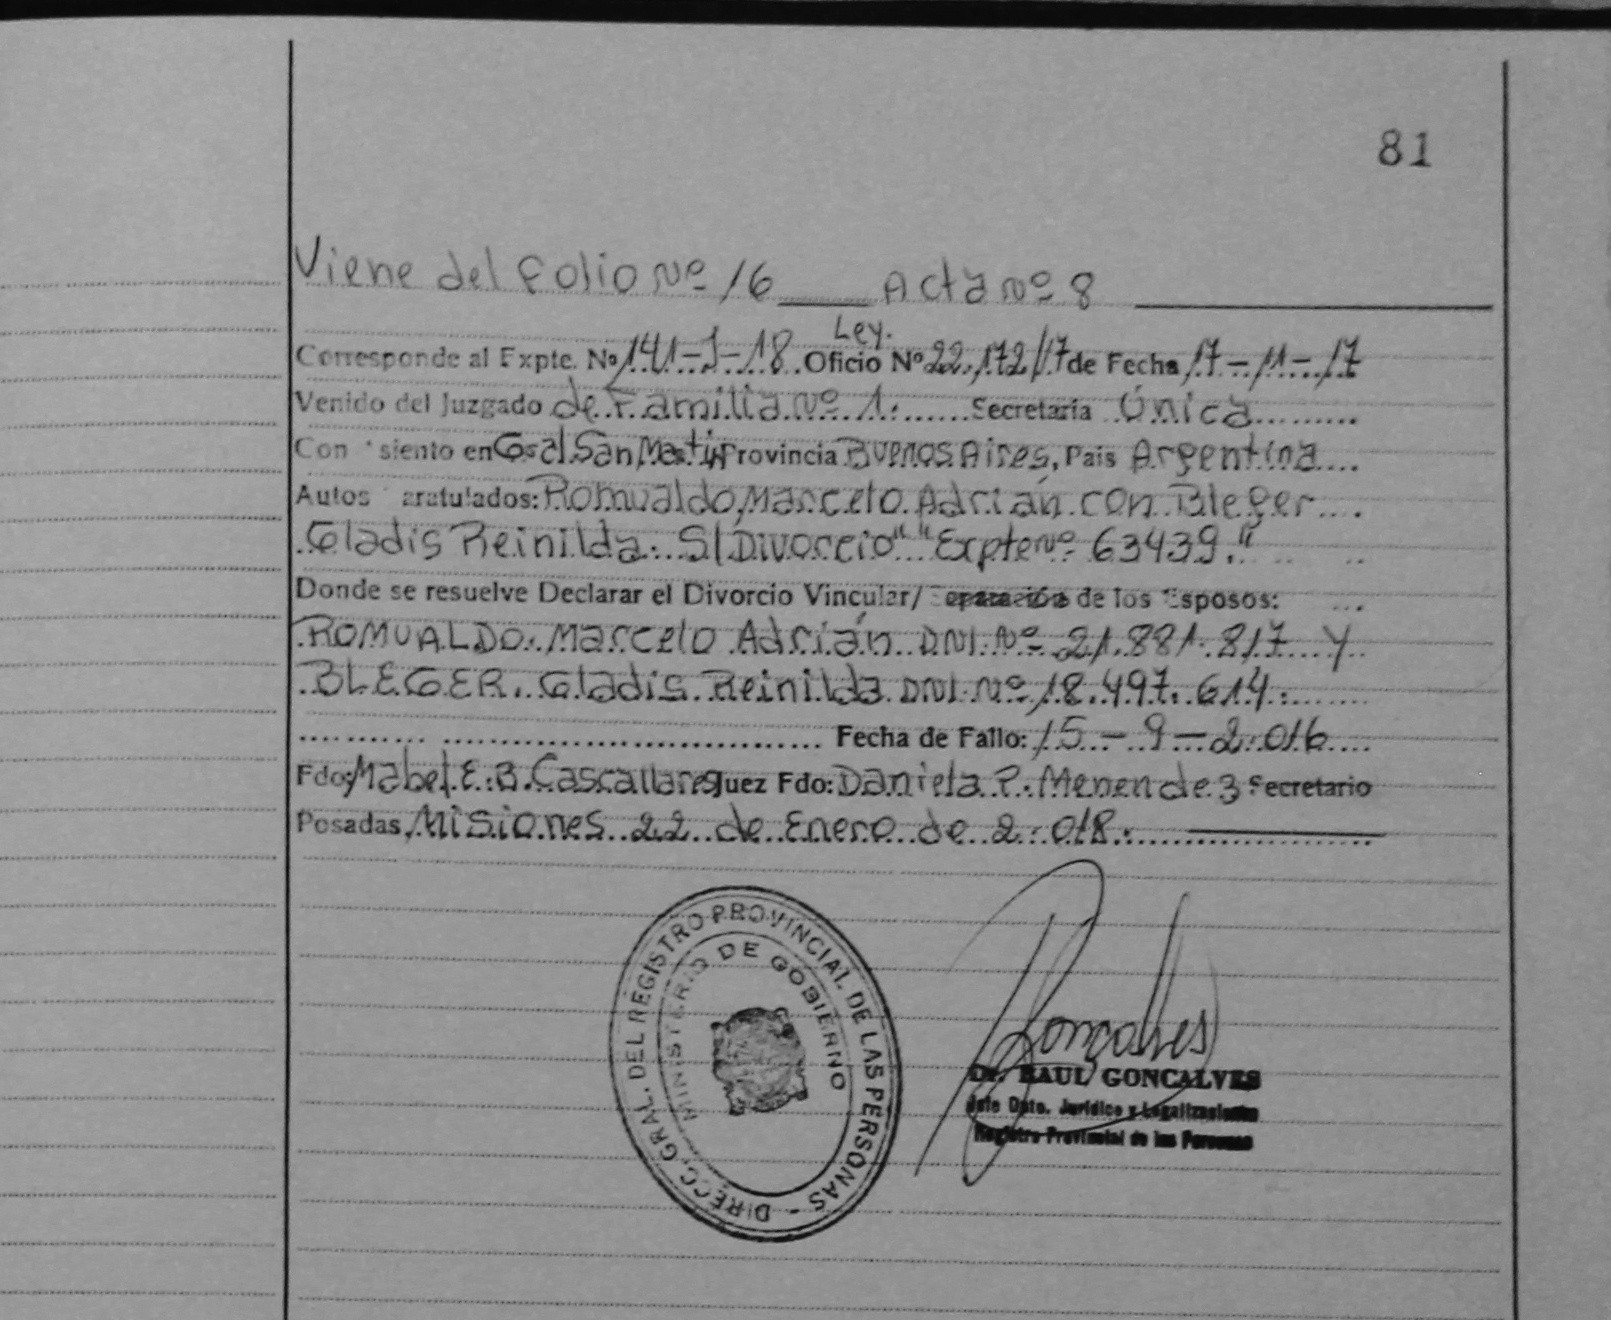 81
Viene del Folio Nº 16 ____ Acta Nº 8 ____
Ley.
Corresponde al Expte. Nº 141-J-18. Oficio Nº 22.172/17 de Fecha 17-11-17
Venido del Juzgado de Familia Nº 1. Secretaria Única
Con siento en Gral San Martín Provincia Buenos Aires, Pais Argentina
Autos aratulados: Romualdo, Marcelo Adrián con Bleger
Gladis Reinilda. S/Divorcio" "Expte Nº 63439."
Donde se resuelve Declarar el Divorcio Vincular/ de los Esposos:
ROMUALDO. Marcelo Adrián DNI. Nº 21.881.817 y
BLEGER. Gladis Reinilda DNI Nº 18.497.614.
Fecha de Fallo: 15-9-2.016
Fdo: Mabel E. B. Cascallares Juez Fdo: Daniela P. Menendez Secretario
Posadas, Misiones 22 de Enero de 2.018.
DIRECC. GRAL. DEL REGISTRO PROVINCIAL DE LAS PERSONAS -
MINISTERIO DE GOBIERNO
Goncalves
Dr. RAUL GONCALVES
Jefe Dpto. Jurídico y Legalizaciones
Registro Provincial de las Personas